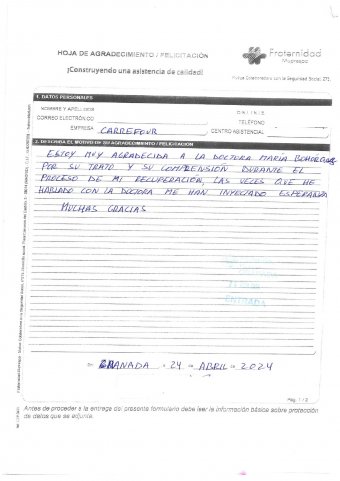 HOJA DE AGRADECIMIENTO / FELICITACIÓN
Fraternidad
Muprespa
¡Construyendo una asistencia de calidad!
Mutua Colaboradora con la Seguridad Social, 275
1. DATOS PERSONALES
NOMBRE Y APELLIDOS
D.N.I./N.I.E.
CORREO ELECTRÓNICO
TELÉFONO
EMPRESA CARREFOUR
CENTRO ASISTENCIAL
2. DESCRIBA EL MOTIVO DE SU AGRADECIMIENTO / FELICITACIÓN
ESTOY MUY AGRADECIDA A LA DOCTORA MARÍA
POR SU TRATO Y SU COMPRENSIÓN DURANTE EL
PROCESO DE MI RECUPERACIÓN, LAS VECES QUE HE
HABLADO CON LA DOCTORA ME HAN INYECTADO ESPERANZA
MUCHAS GRACIAS
ENTRADA
- GRANADA - 24 - ABRIL - 2024
Pág. 1 / 2
Antes de proceder a la entrega del presente formulario debe leer la información básica sobre protección
de datos que se adjunta.